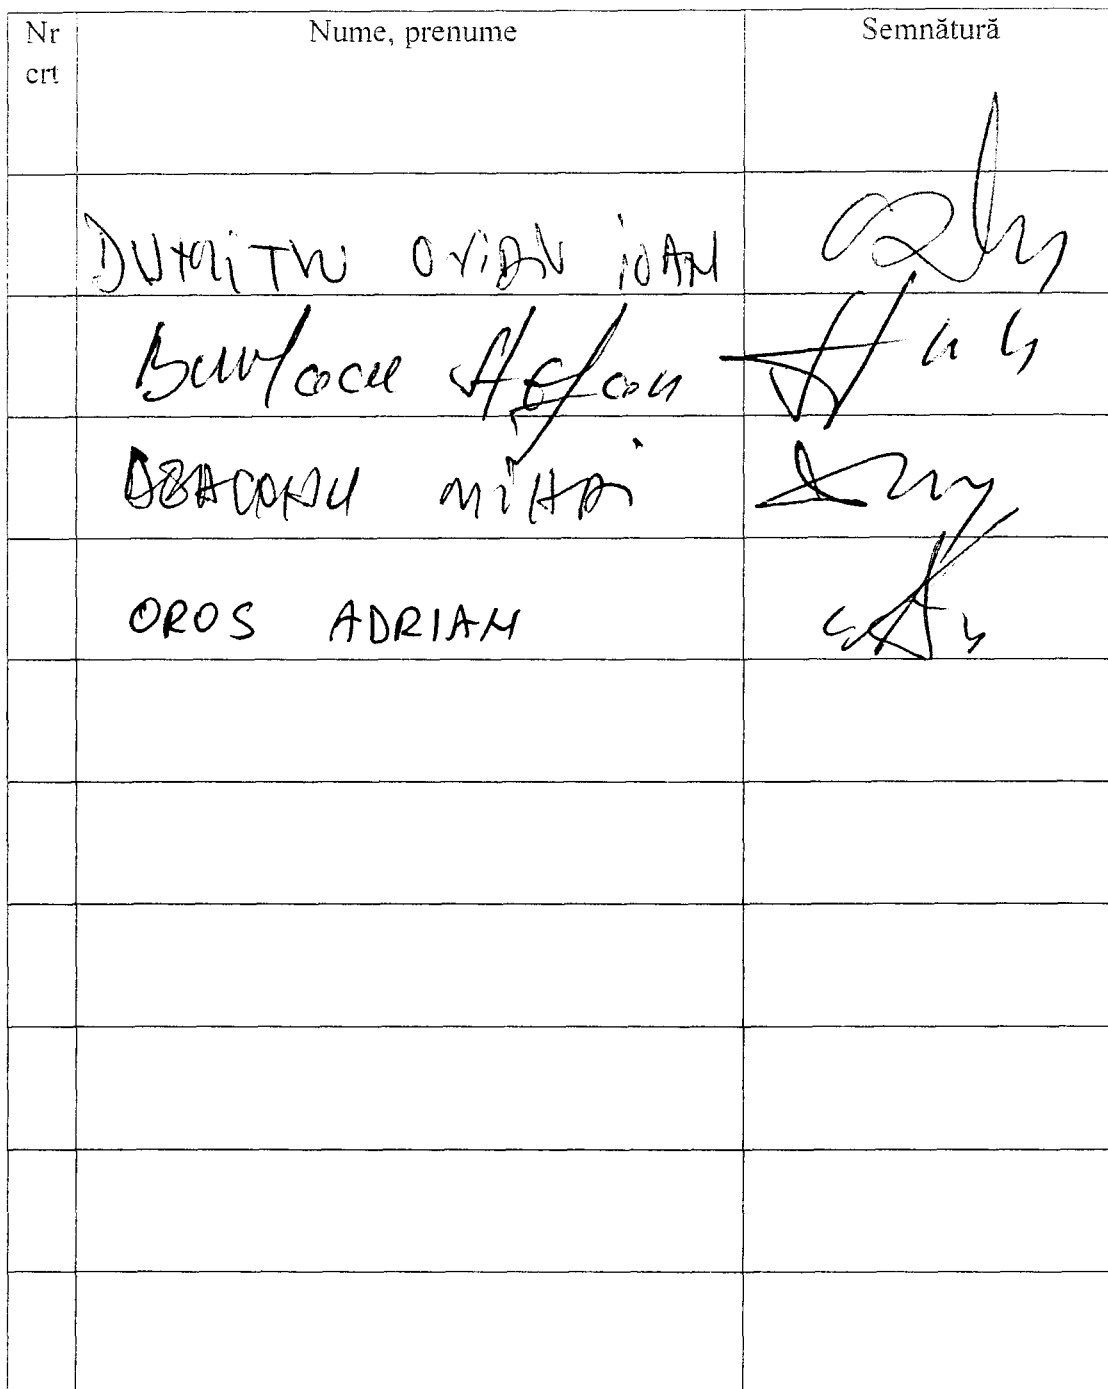 Nr
crt
Nume, prenume
Semnătură
DUMITRU OVIDIU IOAN
Burlacu Stefan
DEACONU MIHAI
OROS ADRIAN